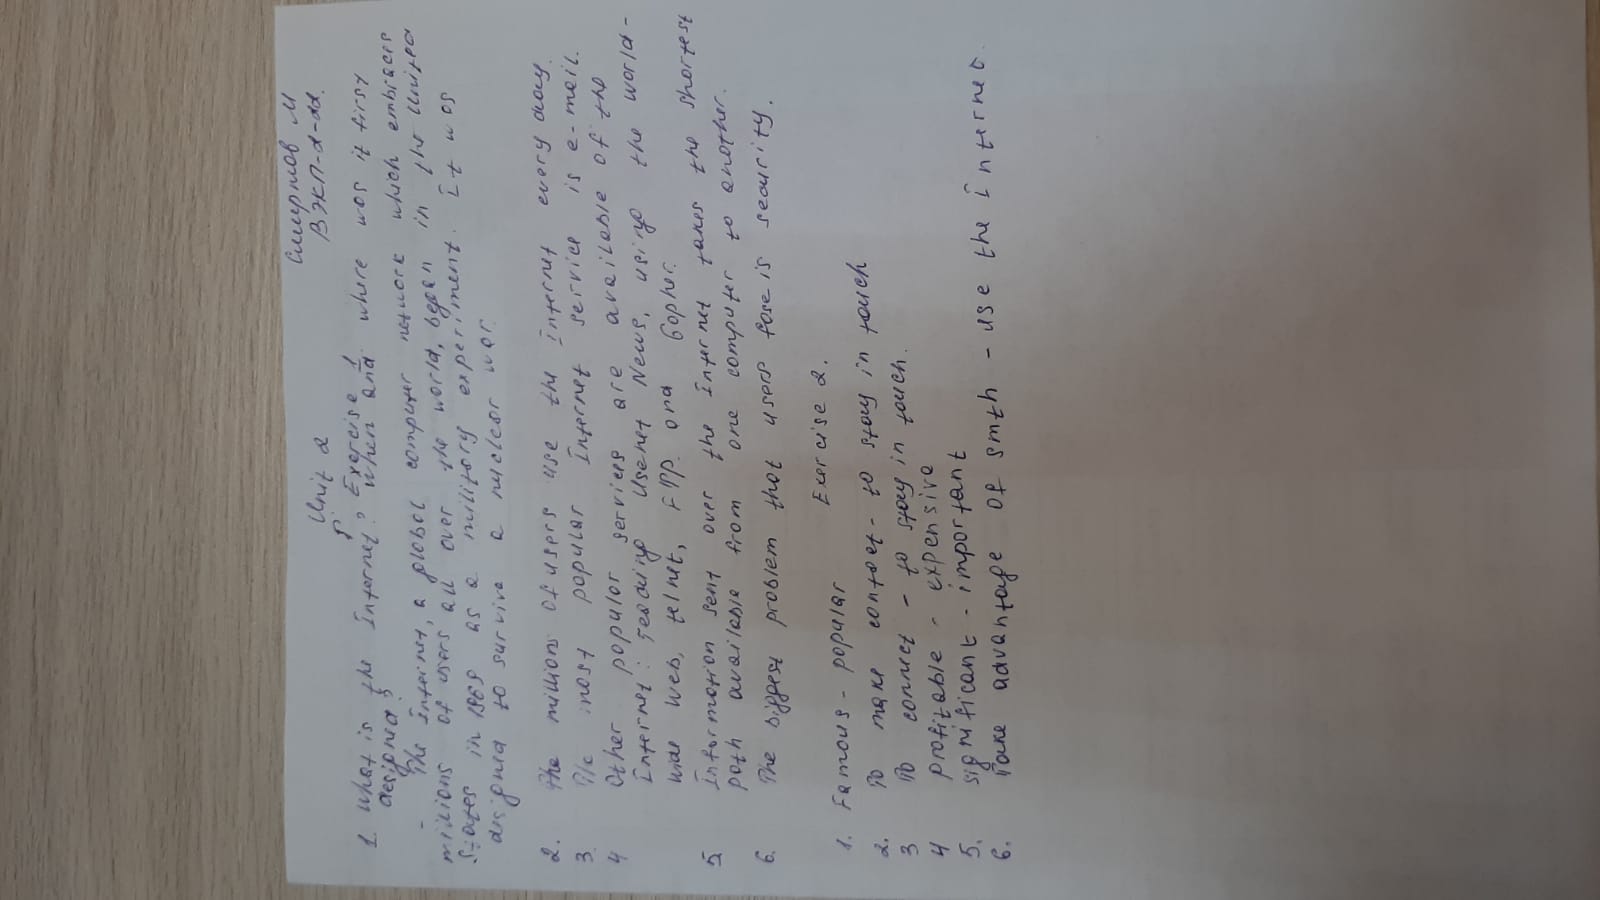 Смирнов М
ВЭКП-2-22.
Unit 2
Exercise 1
1. What is the Internet? When and where was it first
designed?
- The Internet, a global computer network which embraces
millions of users all over the world, began in the United
States in 1969 as a military experiment. It was
designed to survive a nuclear war.
2. The millions of users use the internet every day.
3. The most popular Internet service is e-mail.
4 Other popular services are available of the
Internet: reading Usenet News, using the World-
Wide Web, telnet, FTP. and Gopher.
5 Information sent over the Internet takes the shortest
path available from one computer to another.
6. The biggest problem that users fase is security.
Exercise 2.
1. Famous - popular
2. To make contact - to stay in touch
3 To connect - to stay in touch.
4 profitable - expensive
5. significant - important
6. Take advantage of smth - use the internet.